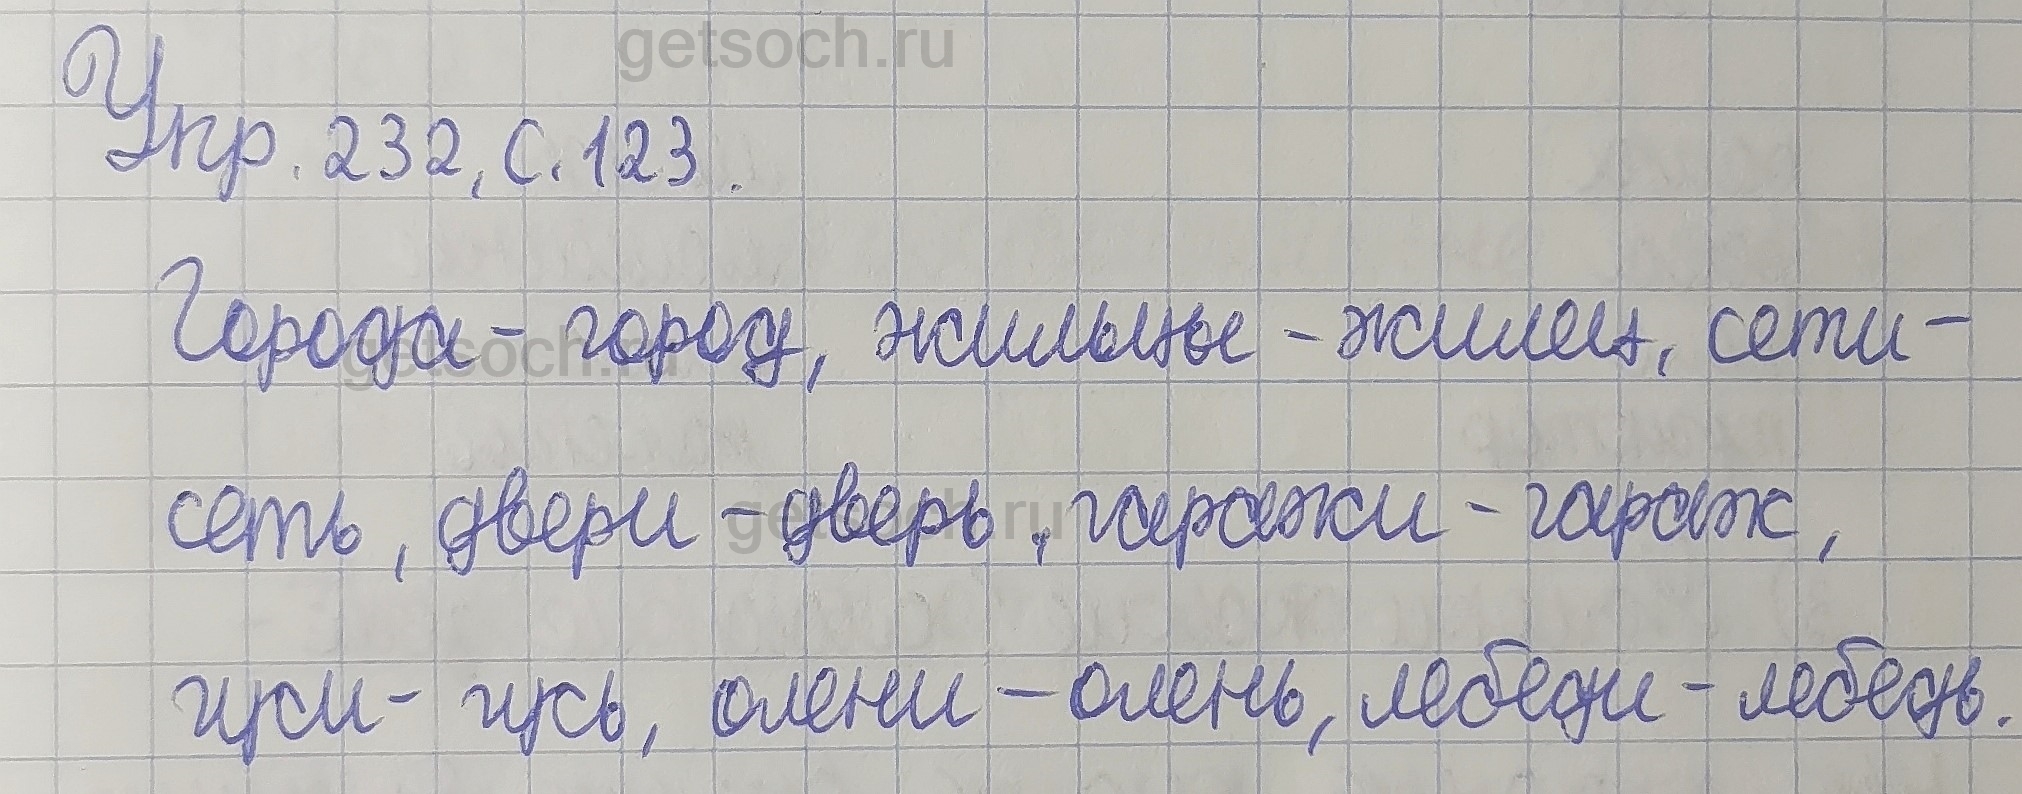 getsoch.ru
Упр. 232, с. 123.
Города - город, жильцы - жилец, сети -
getsoch.ru
сеть, двери - дверь, гаражи - гараж,
getsoch.ru
гуси - гусь, олени - олень, лебеди - лебедь.